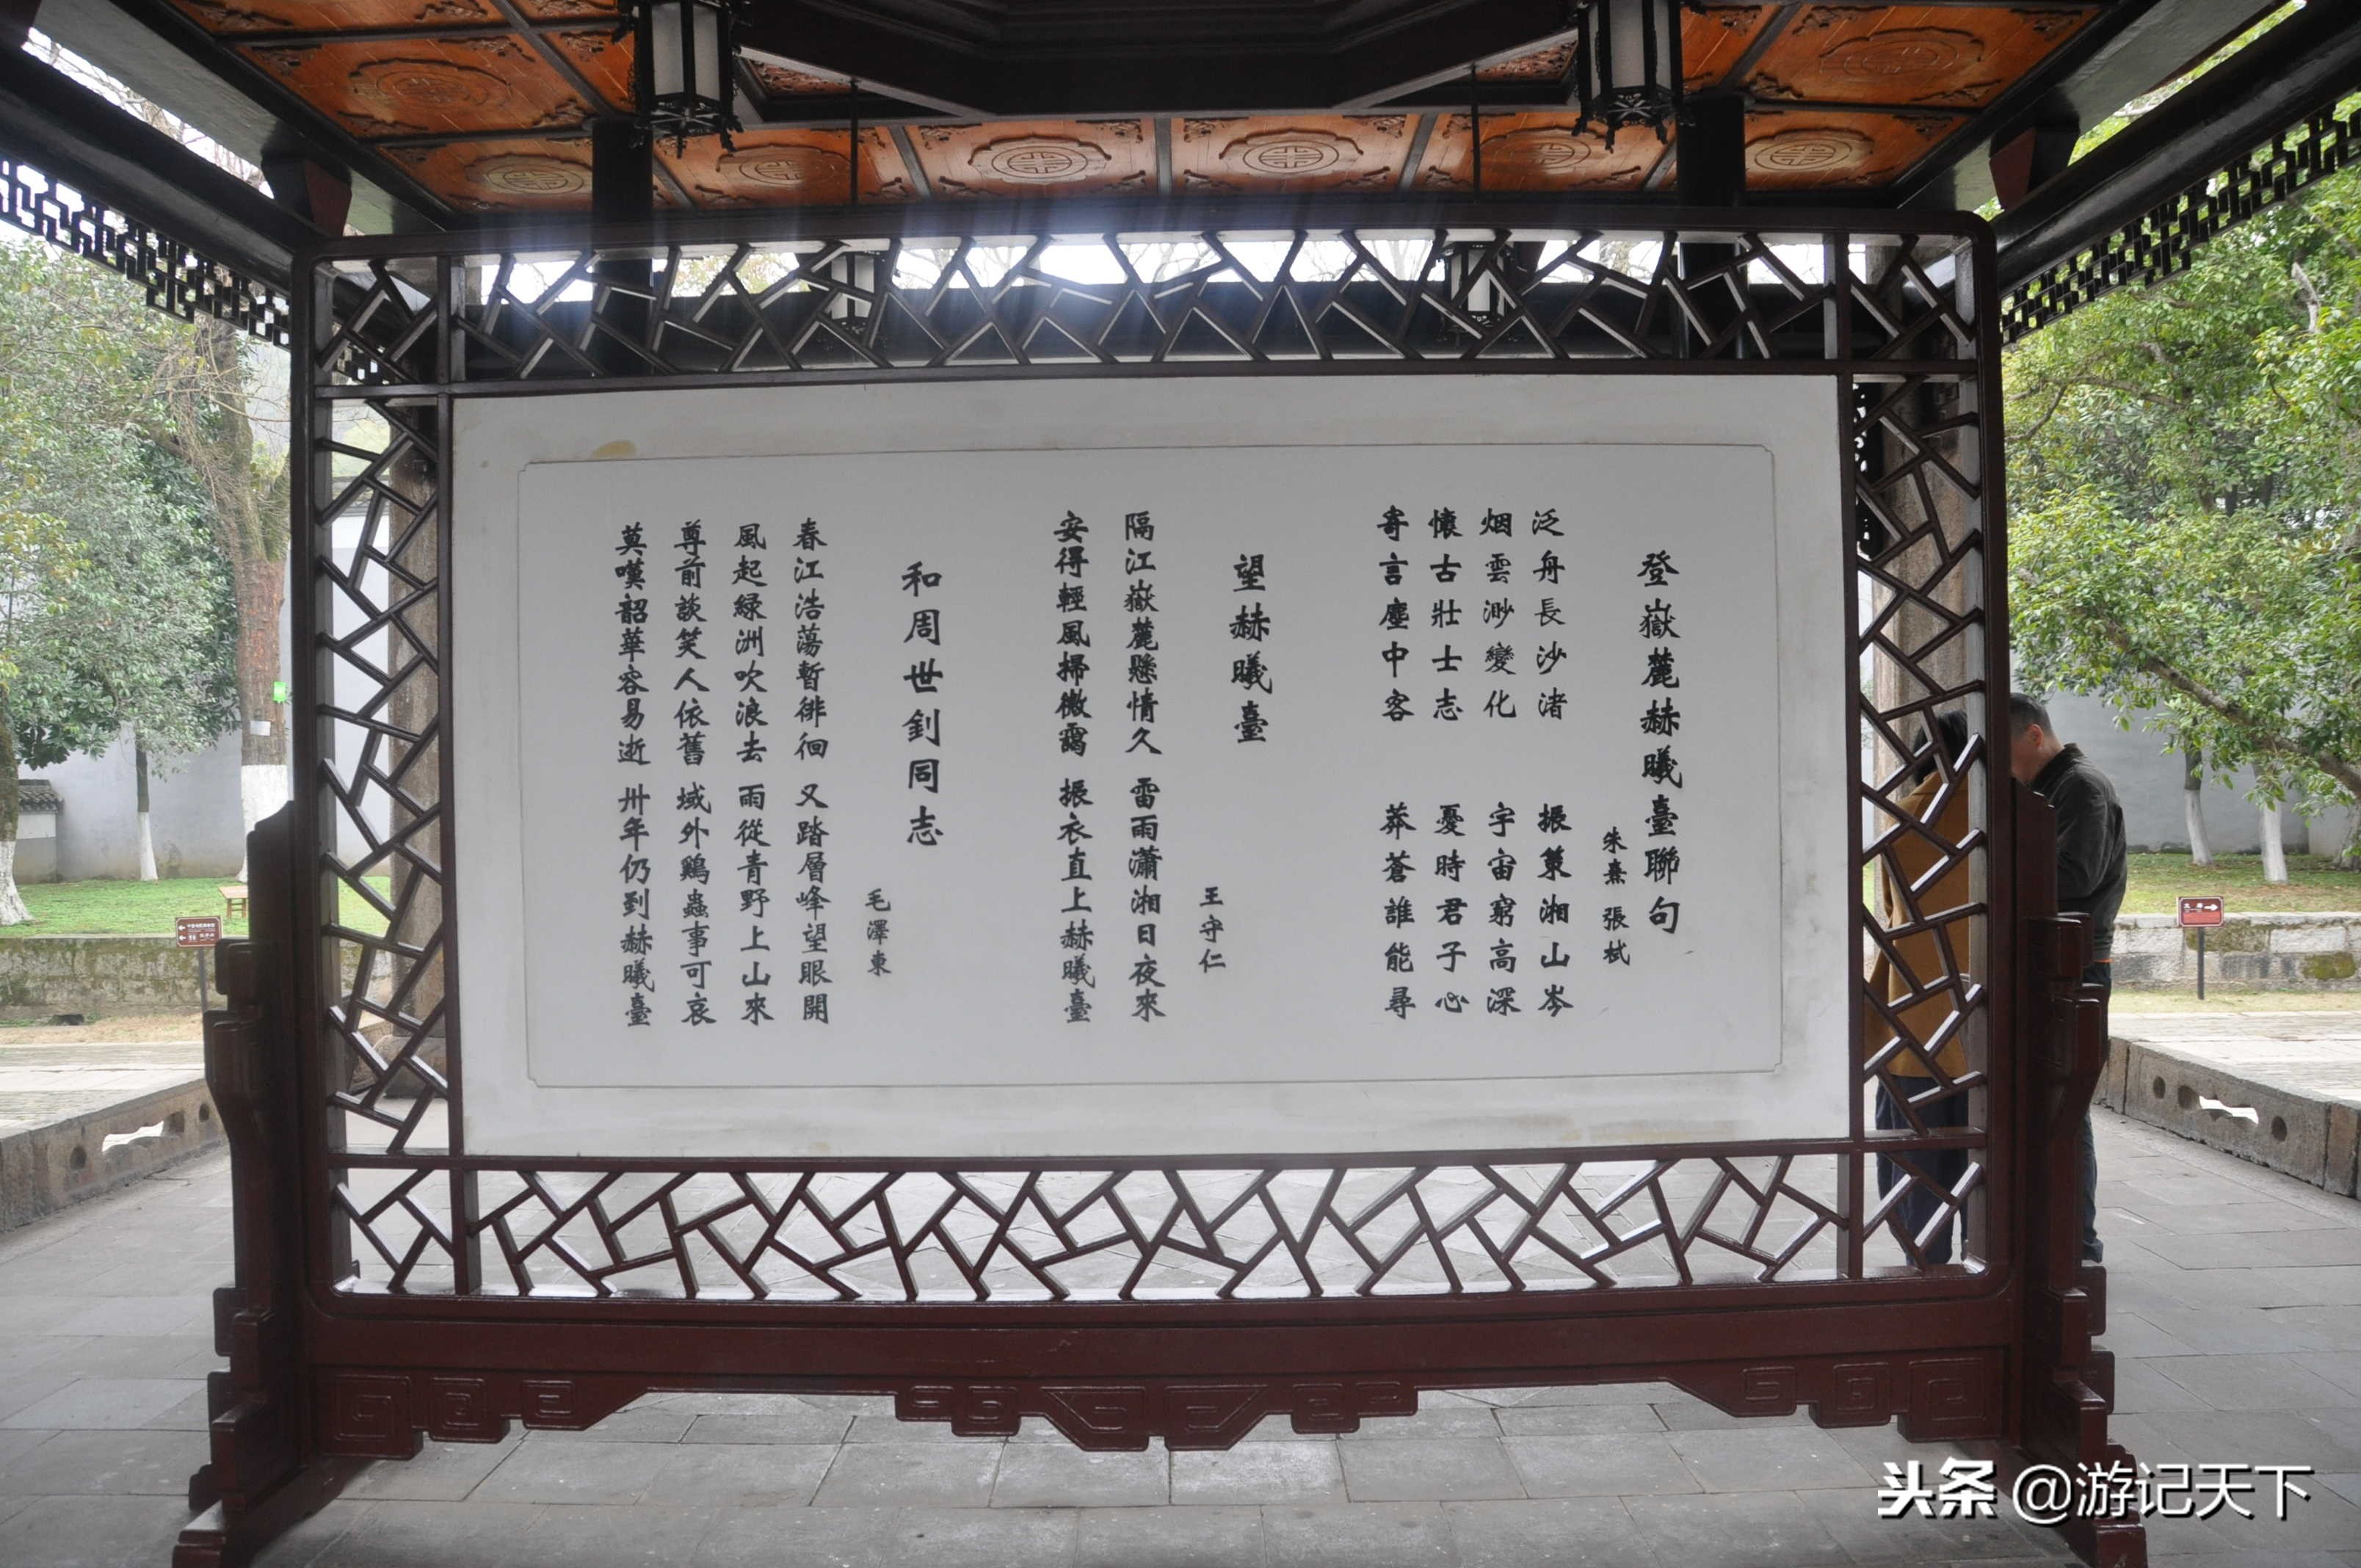 登嶽麓赫曦臺聯句
朱熹 張栻
泛舟長沙渚 振策湘山岑
烟雲渺變化 宇宙窮高深
懷古壯士志 憂時君子心
寄言塵中客 莽蒼誰能尋
望赫曦臺
王守仁
隔江嶽麓懸情久 雷雨瀟湘日夜來
安得輕風掃微靄 振衣直上赫曦臺
和周世釗同志
毛澤東
春江浩蕩暫徘徊 又踏層峰望眼開
風起綠洲吹浪去 雨從青野上山來
尊前談笑人依舊 域外鷄蟲事可哀
莫嘆韶華容易逝 卅年仍到赫曦臺
头条 @游记天下